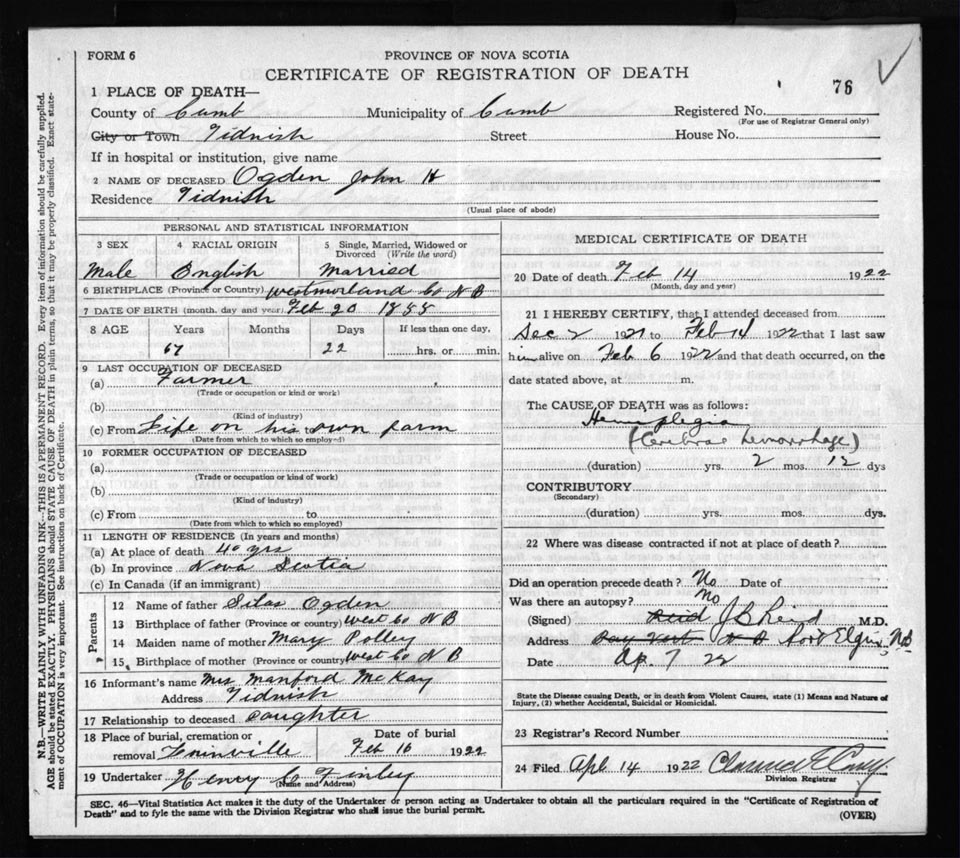 FORM 6
PROVINCE OF NOVA SCOTIA
CERTIFICATE OF REGISTRATION OF DEATH
76
1 PLACE OF DEATH—
County of Cumb Municipality of Cumb Registered No.
(For use of Registrar General only)
City or Town Tidnish Street House No.
If in hospital or institution, give name
2 NAME OF DECEASED Ogden John H
Residence Tidnish
(Usual place of abode)
PERSONAL AND STATISTICAL INFORMATION
3 SEX 4 RACIAL ORIGIN 5 Single, Married, Widowed or Divorced (Write the word)
Male English Married
6 BIRTHPLACE (Province or Country) Westmorland Co N B
7 DATE OF BIRTH (month, day and year) Feb 20 1855
8 AGE Years Months Days If less than one day,
67 22 hrs. or min.
9 LAST OCCUPATION OF DECEASED
(a) Farmer
(Trade or occupation or kind or work)
(b)
(Kind of industry)
(c) From Life on his own farm
(Date from which to which so employed)
10 FORMER OCCUPATION OF DECEASED
(a)
(Trade or occupation or kind of work)
(b)
(Kind of industry)
(c) From to
(Date from which to which so employed)
11 LENGTH OF RESIDENCE (In years and months)
(a) At place of death 40 yrs
(b) In province Nova Scotia
(c) In Canada (if an immigrant)
Parents
12 Name of father Silas Ogden
13 Birthplace of father (Province or country) West Co N B
14 Maiden name of mother Mary Polley
15 Birthplace of mother (Province or country) West Co N B
16 Informant's name Mrs Manford McKay
Address Tidnish
17 Relationship to deceased Daughter
18 Place of burial, cremation or removal Date of burial
Feb 16 1922
19 Undertaker Henry C Finley
(Name and Address)
MEDICAL CERTIFICATE OF DEATH
20 Date of death Feb 14 1922
(Month, day and year)
21 I HEREBY CERTIFY, that I attended deceased from
Dec 2 1921 to Feb 14 1922 that I last saw
him alive on Feb 6 1922 and that death occurred, on the
date stated above, at m.
The CAUSE OF DEATH was as follows:
Hemiplegia
(Cerebral hemorrhage)
(duration) yrs. 2 mos. 12 dys
CONTRIBUTORY
(Secondary)
(duration) yrs. mos. dys.
22 Where was disease contracted if not at place of death?
Did an operation precede death? No Date of
Was there an autopsy? No
(Signed) Reid M.D.
Address Port Elgin N B
Date Ap. 7 22
State the Disease causing Death, or in death from Violent Causes, state (1) Means and Nature of
Injury, (2) whether Accidental, Suicidal or Homicidal.
23 Registrar's Record Number
24 Filed Apl 14 1922 Clarence
Division Registrar
SEC. 46—Vital Statistics Act makes it the duty of the Undertaker or person acting as Undertaker to obtain all the particulars required in the "Certificate of Registration of
Death" and to fyle the same with the Division Registrar who shall issue the burial permit. (OVER)
N.B.—WRITE PLAINLY WITH UNFADING INK—THIS IS A PERMANENT RECORD. Every item of information should be carefully supplied.
AGE should be stated EXACTLY. PHYSICIANS should STATE CAUSE OF DEATH in plain terms, so that it may be properly classified. Exact state-
ment of OCCUPATION is very important. See instructions on back of Certificate.